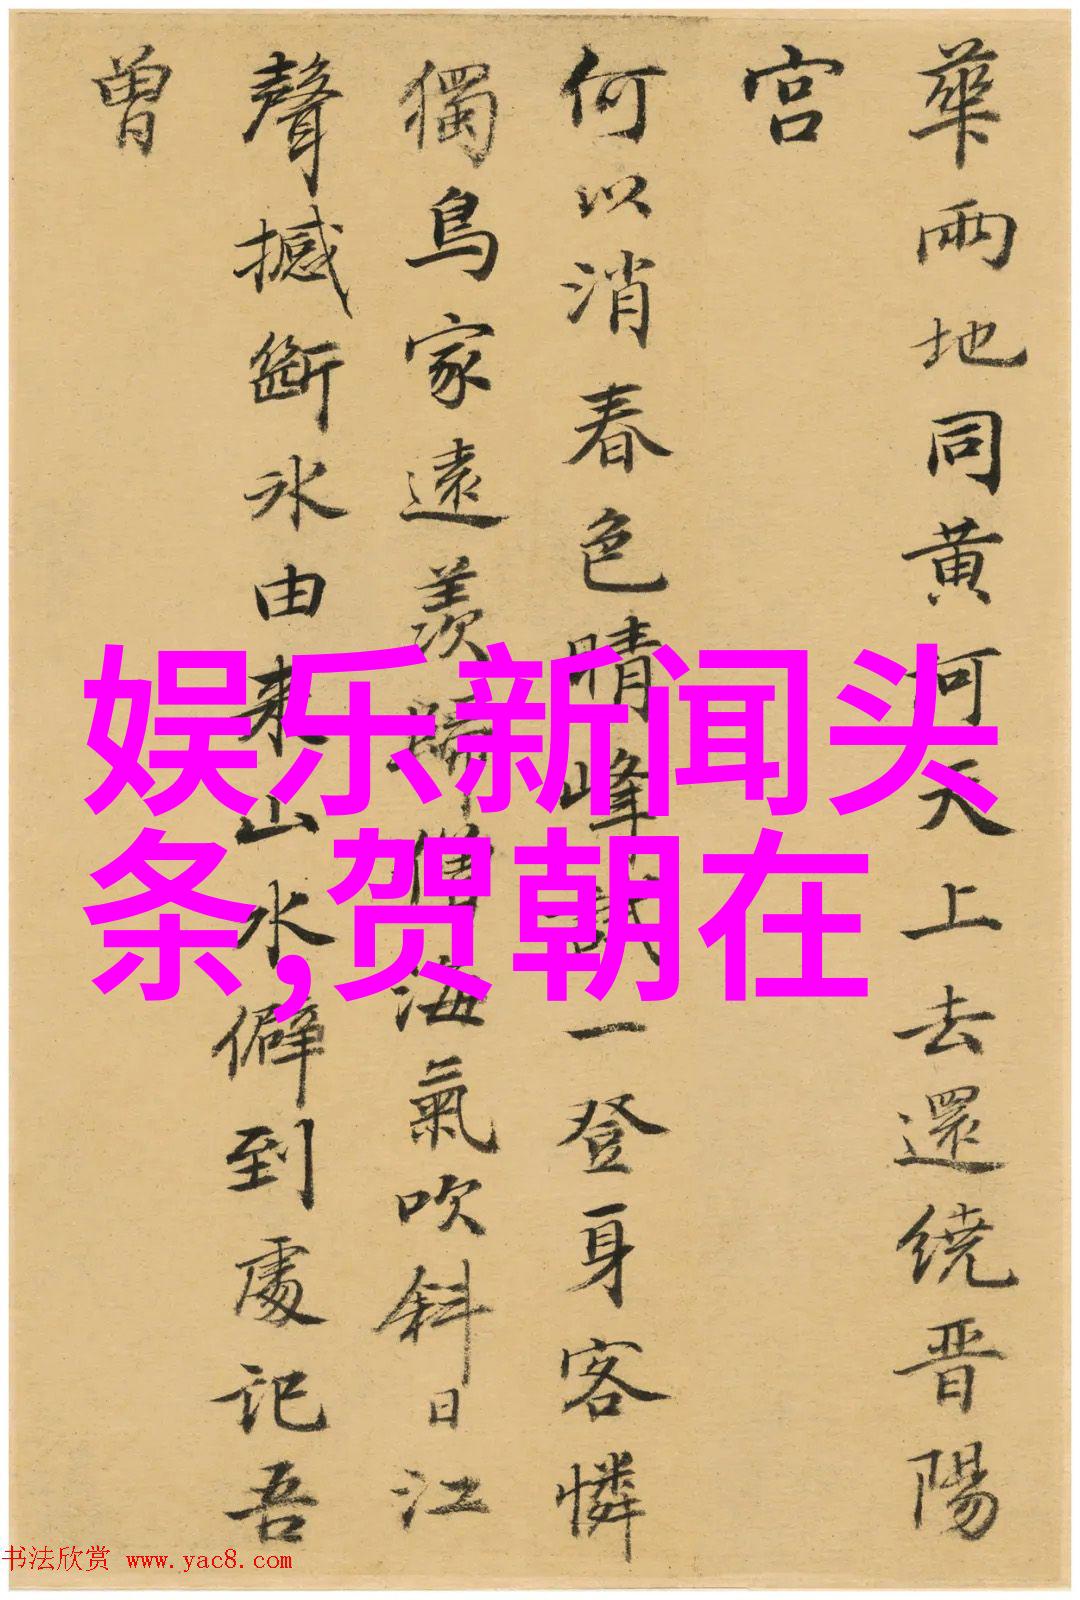 華兩地同黄河天上去還绕晋陽
宫
何以消春色晴峰試一登身客憐
獨鳥家遠羡歸僧海氣吹斜日江
聲撼斷冰由来山水僻到處記吾
曽
娱乐新闻头
条,贺朝在
书法欣赏 www.yac8.com